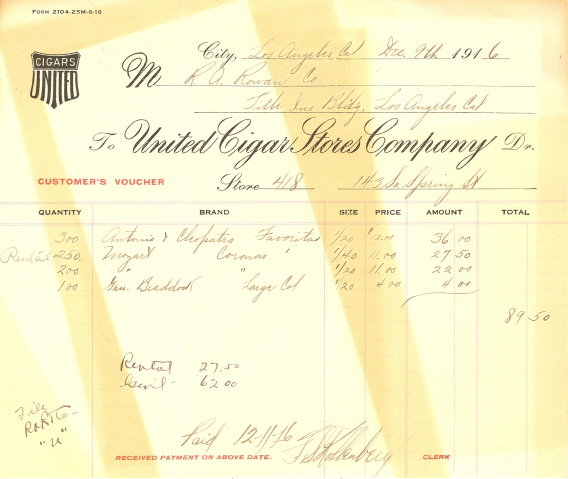 FORM 210A-25M-6-16
CIGARS
UNITED
City, Los Angeles Cal Dec. 9th 1916
M R. A. Rowan Co
Title Ins Bldg, Los Angeles Cal
To United Cigar Stores Company Dr.
CUSTOMER'S VOUCHER
Store 418 143 So Spring St
QUANTITY BRAND SIZE PRICE AMOUNT TOTAL
300 Antonio & Cleopatra Favoritas 1/20 12.00 36 00
Rental 250 Coronas " 1/40 11.00 27 50
200 " " 1/20 11.00 22 00
100 Gen. Braddock Large Cal 1/20 4 00 4 00
89 50
Rental 27.50
62 00
File
"
Paid 12-11-16
RECEIVED PAYMENT ON ABOVE DATE. CLERK